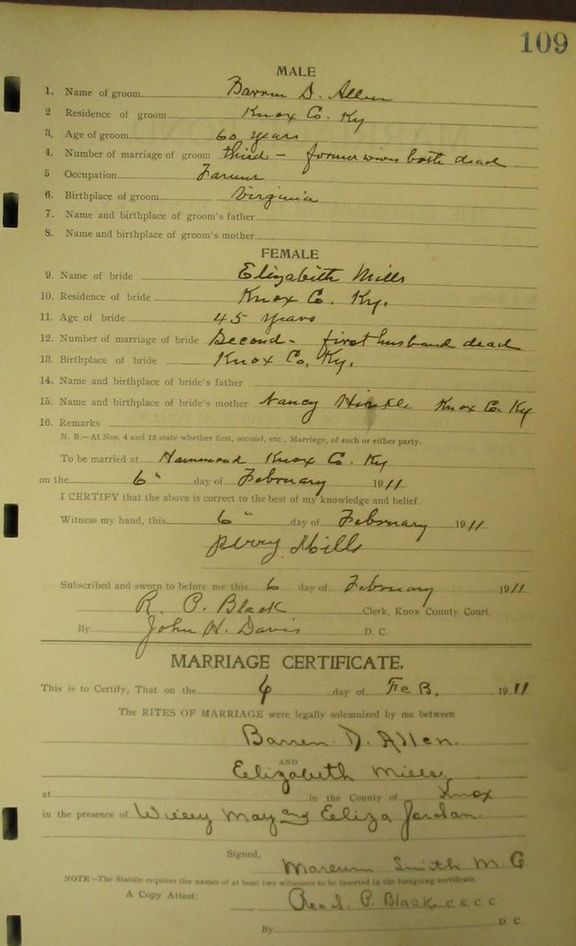 109
MALE
1. Name of groom Barren D. Allen
2 Residence of groom Knox Co. Ky
3. Age of groom 60 years
4. Number of marriage of groom third - former wives both dead
5 Occupation Farmer
6. Birthplace of groom Virginia
7. Name and birthplace of groom's father
8. Name and birthplace of groom's mother
FEMALE
9. Name of bride Elizabeth Mills
10. Residence of bride Knox Co. Ky.
11. Age of bride 45 years
12. Number of marriage of bride Second - first husband dead
13. Birthplace of bride Knox Co, Ky.
14. Name and birthplace of bride's father
15. Name and birthplace of bride's mother Nancy Hinkle Knox Co. Ky
16. Remarks
N. B.—At Nos. 4 and 12 state whether first, second, etc., Marriage, of each or either party.
To be married at Hammond Knox Co. Ky
on the 6" day of February 1911
I CERTIFY that the above is correct to the best of my knowledge and belief.
Witness my hand, this 6" day of February 1911
Perry Mills
Subscribed and sworn to before me this 6 day of February 1911
R. P. Black Clerk, Knox County Court.
By John H. Davis D. C.
MARRIAGE CERTIFICATE.
This is to Certify, That on the 6 day of FeB. 1911
The RITES OF MARRIAGE were legally solemnized by me between
Barren D. Allen.
AND
Elizabeth Mills
at in the County of Knox
in the presence of May and Eliza Jordan.
Signed, Smith M. G
NOTE—The Statute requires the names of at least two witnesses to be inserted in the foregoing certificate.
A Copy Attest: P. Black C K C C
By D. C.